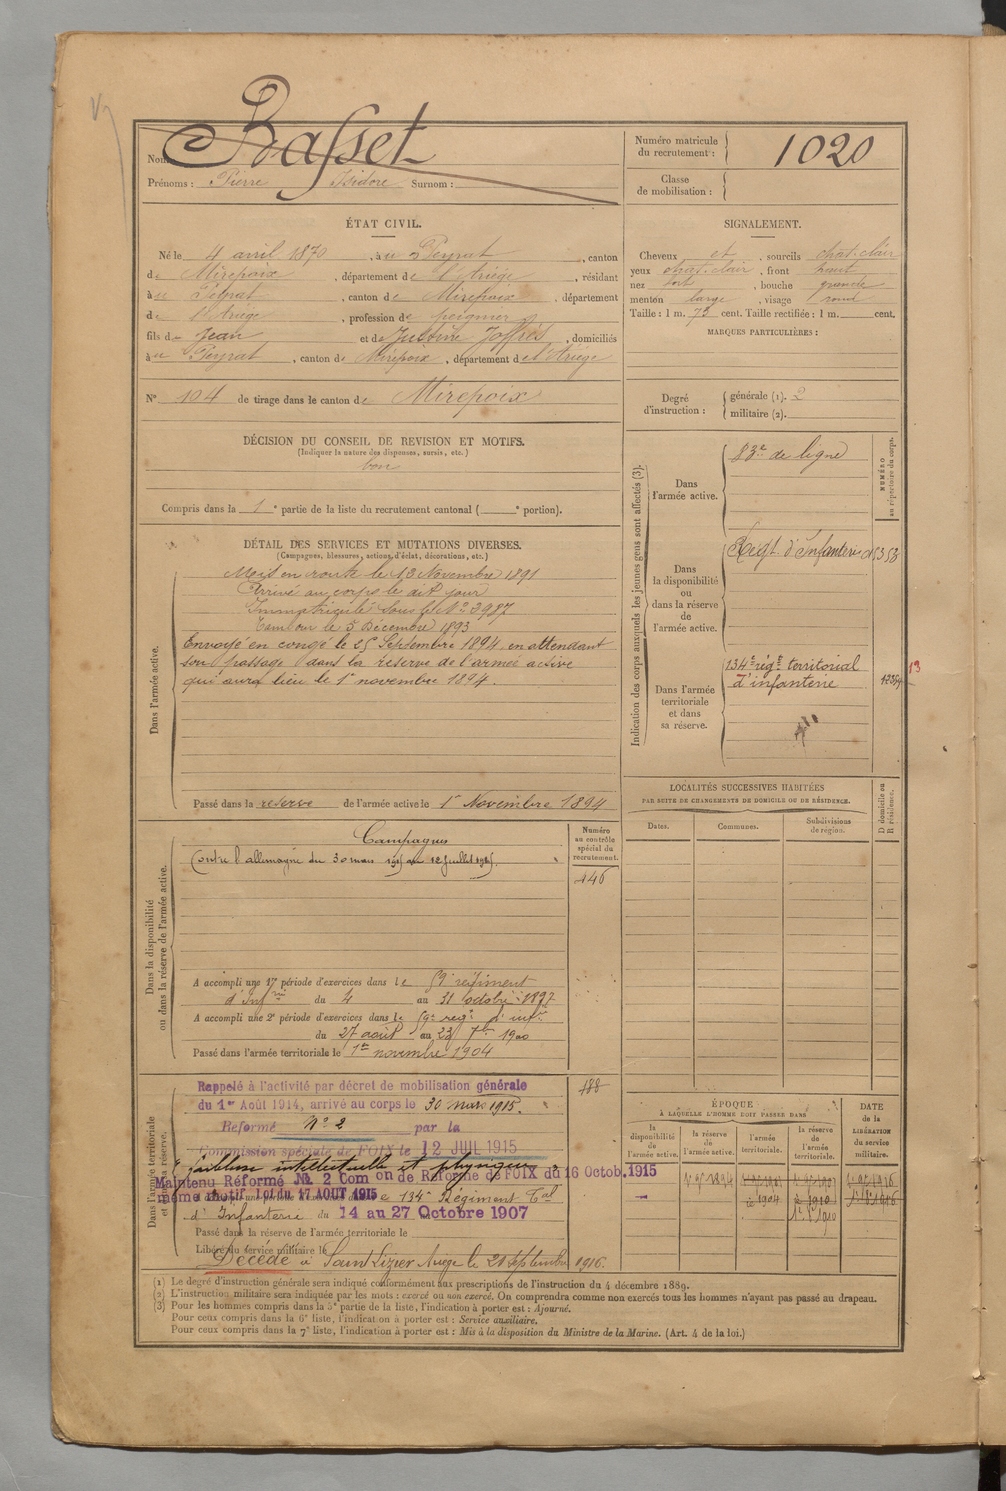 Nom : Basset
Prénoms : Pierre Isidore Surnom :
Numéro matricule du recrutement : 1020
Classe de mobilisation :
ÉTAT CIVIL.
Né le 4 avril 1870, à u Peyrat, canton
de Mirepoix, département de l'Ariège, résidant
à u Peyrat, canton de Mirepoix, département
de l'Ariège, profession de peignier
fils de Jean et de Justine Joffrès, domiciliés
à u Peyrat, canton de Mirepoix, département de l'Ariège
N° 104 de tirage dans le canton de Mirepoix
SIGNALEMENT.
Cheveux et, sourcils chat. clair
yeux chat. clair, front haut
nez fort, bouche grande
menton large, visage rond
Taille : 1 m. 73 cent. Taille rectifiée : 1 m. cent.
MARQUES PARTICULIÈRES :
Degré d'instruction : générale (1). 2
militaire (2).
DÉCISION DU CONSEIL DE REVISION ET MOTIFS.
(Indiquer la nature des dispenses, sursis, etc.)
bon
Compris dans la 1e partie de la liste du recrutement cantonal ( e portion).
DÉTAIL DES SERVICES ET MUTATIONS DIVERSES.
(Campagnes, blessures, actions d'éclat, décorations, etc.)
Dans l'armée active.
Mis en route le 13 Novembre 1891
Arrivé au corps le dit jour
Immatriculé sous le N° 3987
Tambour le 5 Décembre 1893
Envoyé en congé le 25 Septembre 1894, en attendant
son passage dans la réserve de l'armée active
qui aura lieu le 1er novembre 1894.
Passé dans la réserve de l'armée active le 1er Novembre 1894
Indication des corps auxquels les jeunes gens sont affectés (3).
NUMÉRO au répertoire du corps.
Dans l'armée active.
83e de ligne
Dans la disponibilité ou dans la réserve de l'armée active.
Régt. d'Infanterie
Dans l'armée territoriale et dans sa réserve.
134e régt territorial
d'infanterie
13
LOCALITÉS SUCCESSIVES HABITÉES
PAR SUITE DE CHANGEMENTS DE DOMICILE OU DE RÉSIDENCE.
Dates. Communes. Subdivisions de région. D domicile ou R résidence.
Dans la disponibilité ou dans la réserve de l'armée active.
Numéro au contrôle spécial du recrutement.
446
Campagnes
Contre l'allemagne du 30 mars 1915 au 12 Juillet 1915.
A accompli une 1re période d'exercices dans le 59e régiment
d'Infrie du 4 au 31 octobre 1897
A accompli une 2e période d'exercices dans le 59e régt d'infie
du 27 août au 23 7bre 1900
Passé dans l'armée territoriale le 1er novembre 1904
Dans l'armée territoriale et sa réserve.
188
Rappelé à l'activité par décret de mobilisation générale
du 1er Août 1914, arrivé au corps le 30 mars 1915.
Réformé N° 2 par la
Commission spéciale de FOIX le 12 JUIL 1915
"faiblesse intellectuelle et physique"
Maintenu Réformé N° 2 Com on de Réforme de FOIX du 16 Octob. 1915
même motif loi du 17 AOUT 1915 134e Régiment Tal
d'Infanterie du 14 au 27 Octobre 1907
Passé dans la réserve de l'armée territoriale le
Libéré du service militaire le
Décédé à Saint Lizier Ariège le 21 septembre 1916.
ÉPOQUE
À LAQUELLE L'HOMME DOIT PASSER DANS
la disponibilité de l'armée active. la réserve de l'armée active. l'armée territoriale. la réserve de l'armée territoriale.
DATE de la LIBÉRATION du service militaire.
(1) Le degré d'instruction générale sera indiqué conformément aux prescriptions de l'instruction du 4 décembre 1889.
(2) L'instruction militaire sera indiquée par les mots : exercé ou non exercé. On comprendra comme non exercés tous les hommes n'ayant pas passé au drapeau.
(3) Pour les hommes compris dans la 5e partie de la liste, l'indication à porter est : Ajourné.
Pour ceux compris dans la 6e liste, l'indication à porter est : Service auxiliaire.
Pour ceux compris dans la 7e liste, l'indication à porter est : Mis à la disposition du Ministre de la Marine. (Art. 4 de la loi.)